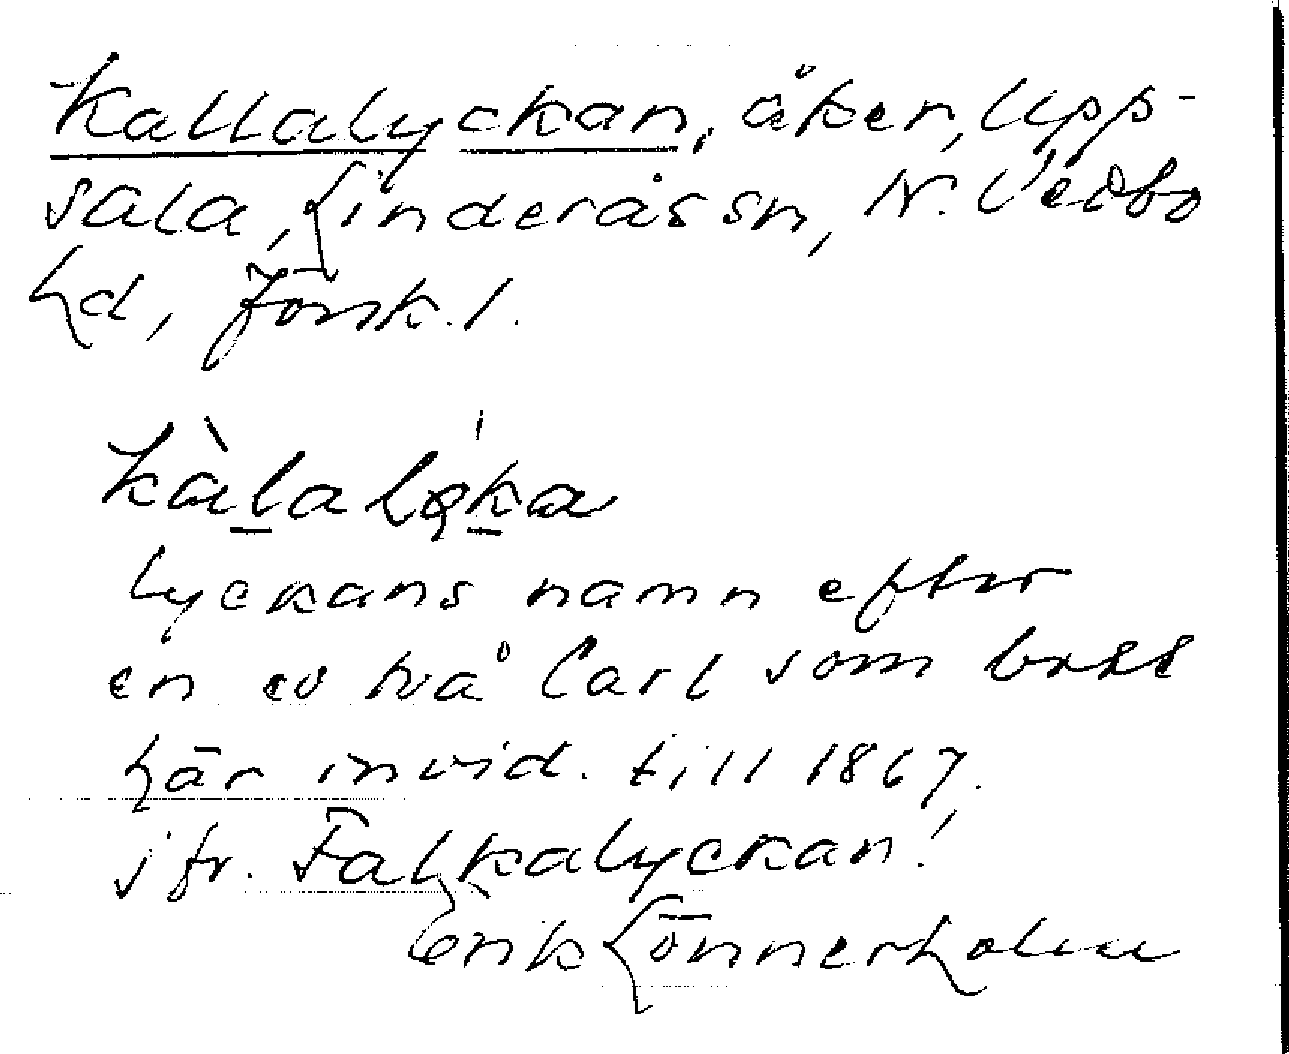 Kallalyckan, åker, Upp-
sala, Linderås sn, N. Vedbo
hd, Jönk. l.
kàlalø̨ka
Lyckans namn efter
en av två Carl som bott
här invid. till 1867.
jfr. Falkalyckan!
Erik Lönnerholm